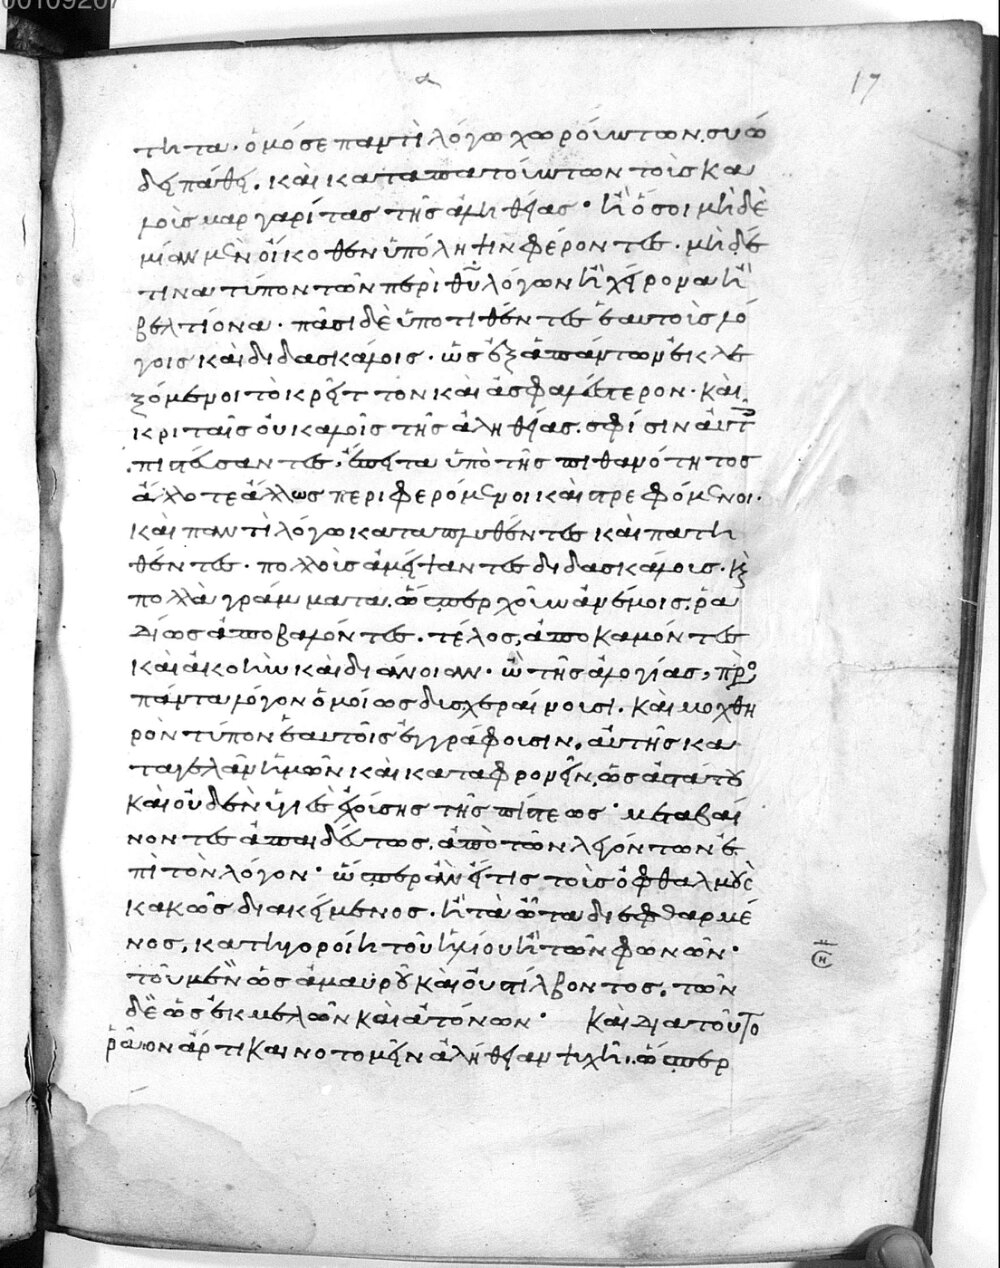 τητα· ὁμόσε παντὶ λόγω χωρούντων. συῶ
δὴ πάθει. καὶ καταπατούντων τοὺς κα
λοὺς μαργαρίτας τῆς ἀληθείας· ἢ ὅσοι μηδὲ
μίαν μὲν οἴκοθεν ὑπόληψιν φέροντες. μηδέ
τινα τύπον τῶν περὶ θ̅υ̅ λόγων ἢ χείρονα ἢ
βελτίονα· πᾶσι δὲ ὑποτιθέντες ἑαυτοὺς λό
γοις καὶ διδασκάλοις· ὡς ἐξ ἁπάντων ἐκλε
ξόμενοι τὸ κρεῖττον καὶ ἀσφαλέστερον· καὶ
κριταῖς οὐ καλοῖς τῆς ἀληθείας. σφίσιν αὐτ
πιστεύσαντες, ἔπειτα ὑπὸ τῆς πιθανότητος
ἄλλοτε ἄλλως περιφερόμενοι καὶ στρεφόμενοι.
καὶ παντὶ λόγω καταντληθέντες καὶ πατη
θέντες· πολλοὺς ἀμείψαντες διδασκάλους· κ
πολλὰ γράμματα. ὥσπερ χοῦν ἀνέμοις. ῥα
δίως ἀποβαλόντες. τέλος, ἀποκαμόντες
καὶ ἀκοὴν καὶ διάνοιαν· ὢ τῆς ἀλογίας, πρὸ
πάντα λόγον ὁμοίως δυσχεραίνουσι. καὶ μοχθη
ρὸν τύπον ἑαυτοῖς ἐγγράφουσιν, αὐτῆς κα
ταγελᾶν ἡμῶν καὶ καταφρονεῖν, ὡς ἀστάτου
καὶ οὐδὲν ὑγιὲς ἐχούσης τῆς πίστεως· μεταβαί
νοντες ἀπαιδεύτως. ἀπὸ τῶν λεγόντων ἐ
πὶ τὸν λόγον· ὥσπερ ἂν εἴ τις τοὺς ὀφθαλμοὺς
κακῶς διακείμενος. ἢ τὰ ὦτα διεφθαρμέ
νος, κατηγοροίη τοῦ ἡλίου ἢ τῶν φωνῶν·
τοῦ μὲν ὡς ἀμαυροῦ καὶ οὐ στίλβοντος. τῶν
δὲ ὡς ἐκμελῶν καὶ ἀτόνων· καὶ διατοῦτο
ῥᾶον ἄρτι καινοτομεῖν ἀλήθειαν ψυχῆ.. ὥσπερ
17